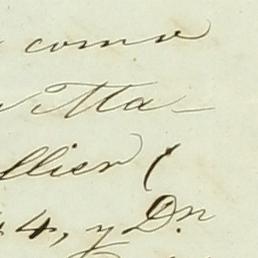 como
Ma-
llier (
4, y Dn.